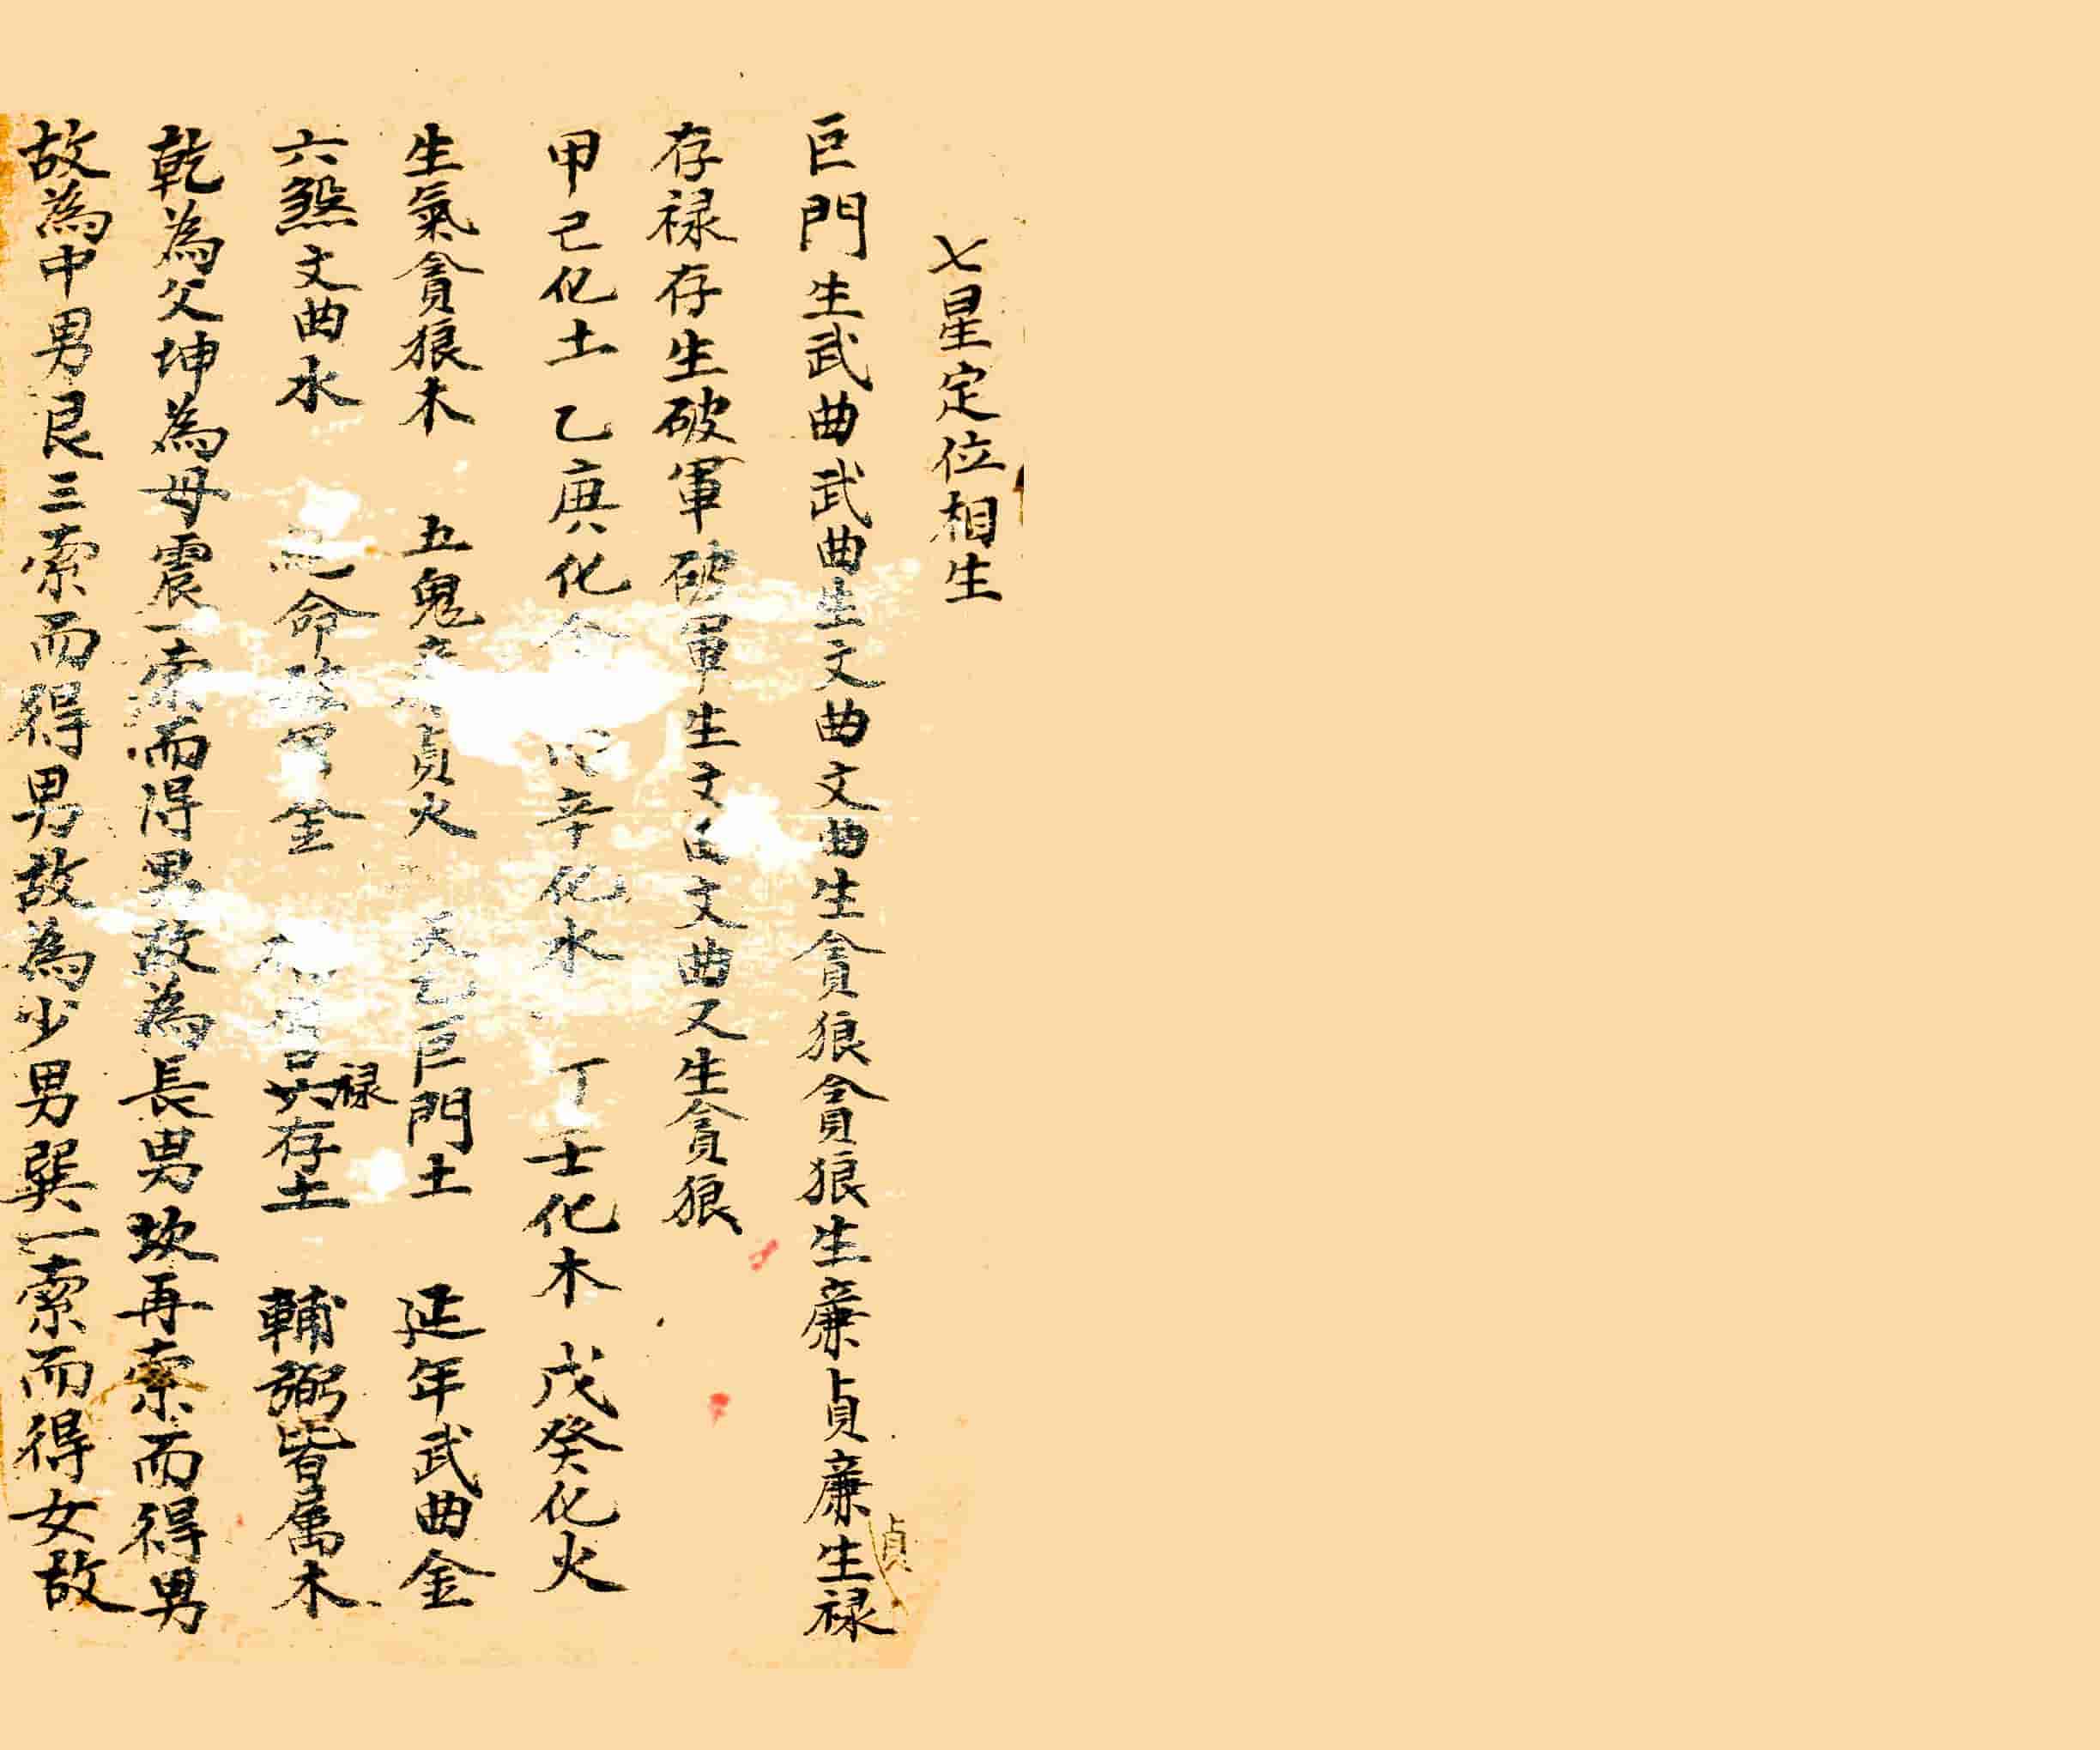 七星定位相生
巨門生武曲武曲生文曲文曲生貪狼貪狼生廉貞廉貞生禄
存禄存生破軍破軍生文曲文曲又生貪狼
甲己化土 乙庚化金 辛化水 丁壬化木 戊癸化火
生氣貪狼木 五鬼廉貞火 天乙巨門土 延年武曲金
六煞文曲水 命破軍金 禄存土 輔弼皆属木
乾為父坤為母震一索而得男故為長男坎再索而得男
故為中男艮三索而得男故為少男巽一索而得女故